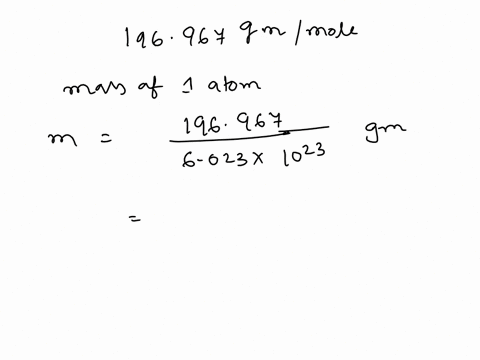 196.967 gm/mole
mass of 1 atom
m = 196.967 / 6.023 x 10^23 gm
=